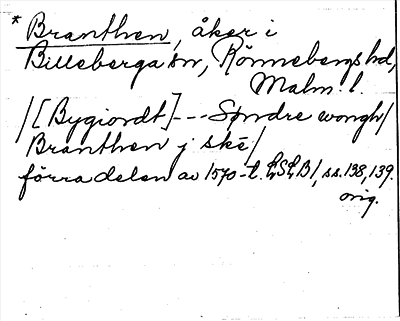 * Branthen, åker i
Billeberga sn, Rönnebergs hd,
Malm. l.
/[Bygiordt]---Søndre wongh/
Branthen j ske/
förra delen av 1570-t. LSEB1, ss. 138, 139.
orig.